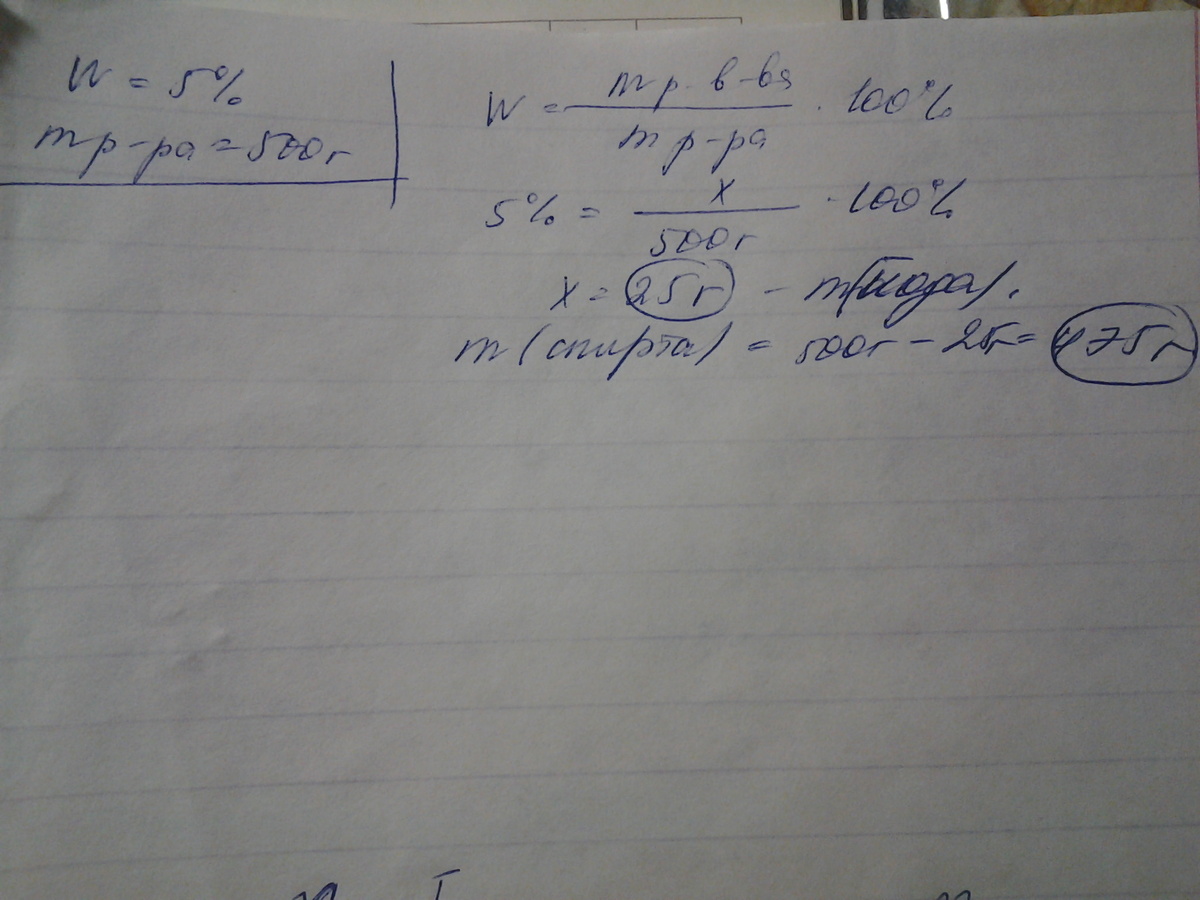 W = 5%
mр-ра = 500г
W = mр.в-ва / mр-ра · 100%
5% = x / 500г · 100%
x = 25г - m(йода).
m(спирта) = 500г - 25г = 475г